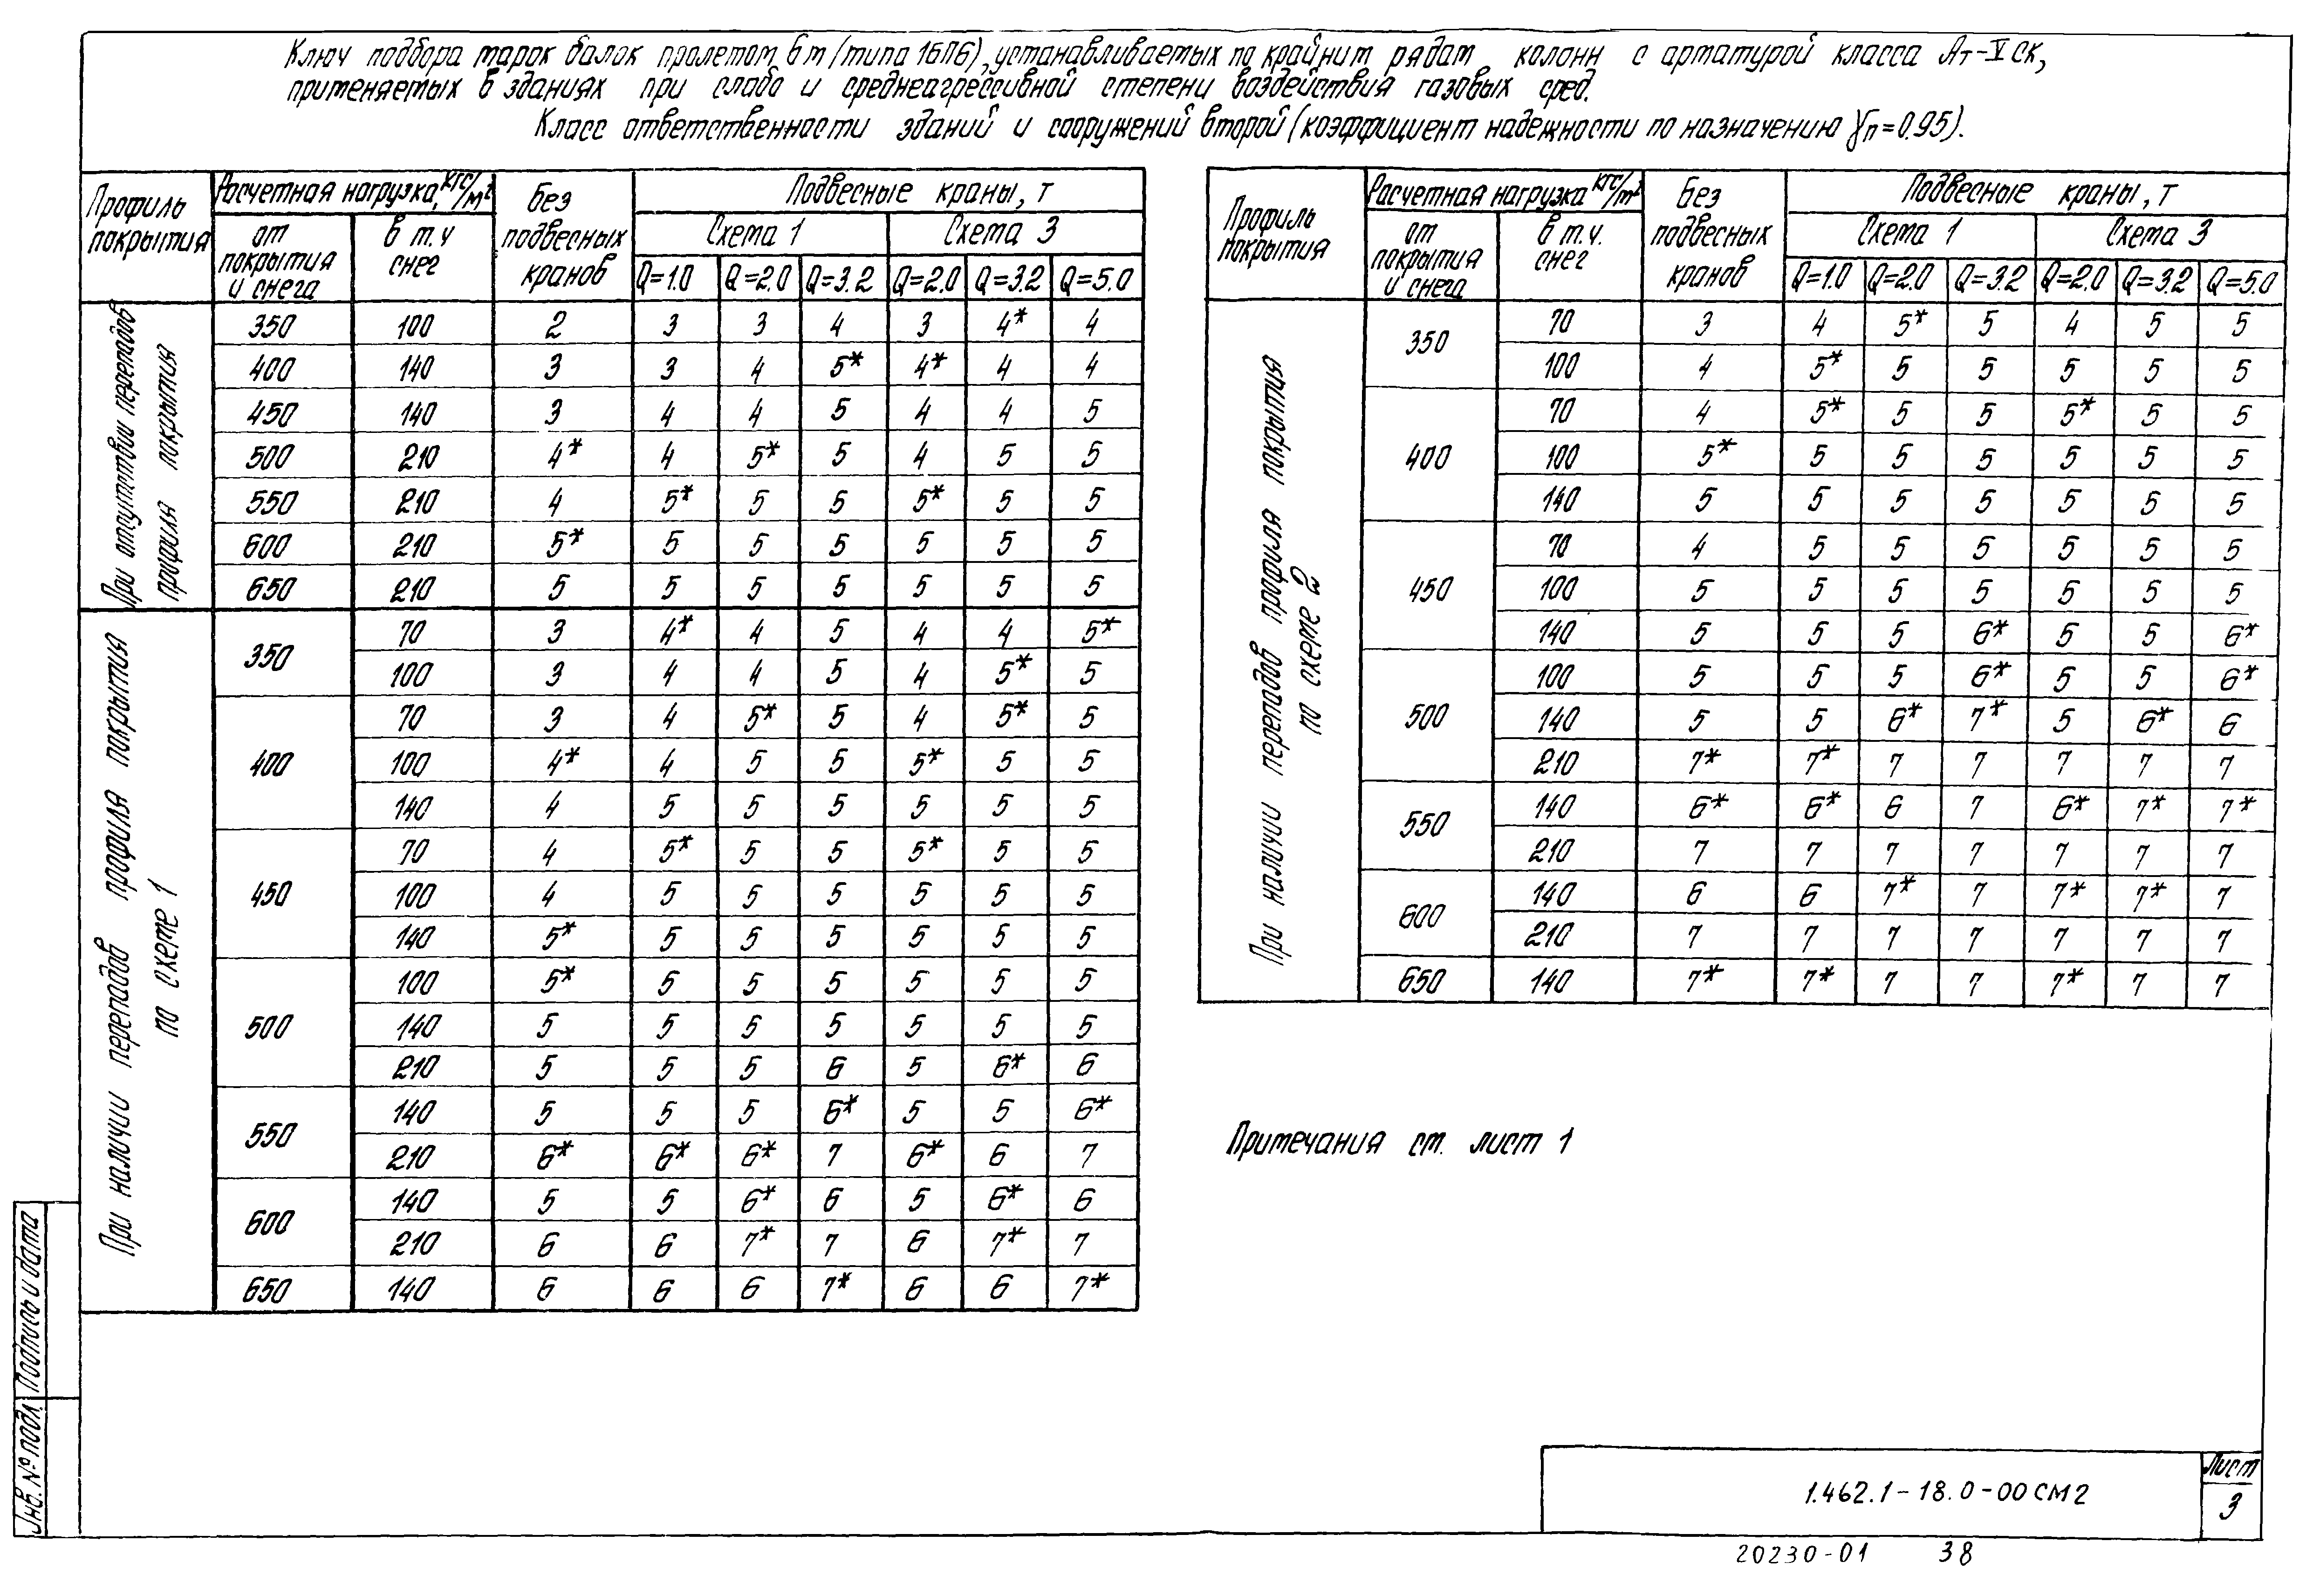 Ключ подбора марок балок пролетом 6 м (типа 1БП6), устанавливаемых по крайним рядам колонн с арматурой класса Ат-V СК,
применяемых в зданиях при слабо и среднеагрессивной степени воздействия газовых сред.
Класс ответственности зданий и сооружений второй (коэффициент надежности по назначению γп=0.95).
Профиль покрытия
Расчетная нагрузка, кгс/м²
от покрытия и снега
в т.ч снег
Без подвесных кранов
Подвесные краны, т
Схема 1
Схема 3
Q=1.0 Q=2.0 Q=3.2 Q=2.0 Q=3.2 Q=5.0
При отсутствии перепадов профиля покрытия
350 100 2 3 3 4 3 4* 4
400 140 3 3 4 5* 4* 4 4
450 140 3 4 4 5 4 4 5
500 210 4* 4 5* 5 4 5 5
550 210 4 5* 5 5 5* 5 5
600 210 5* 5 5 5 5 5 5
650 210 5 5 5 5 5 5 5
При наличии перепадов профиля покрытия по схеме 1
350 70 3 4* 4 5 4 4 5*
100 3 4 4 5 4 5* 5
400 70 3 4 5* 5 4 5* 5
100 4* 4 5 5 5* 5 5
140 4 5 5 5 5 5 5
450 70 4 5* 5 5 5* 5 5
100 4 5 5 5 5 5 5
140 5* 5 5 5 5 5 5
500 100 5* 5 5 5 5 5 5
140 5 5 5 5 5 5 5
210 5 5 5 6 5 6* 6
550 140 5 5 5 6* 5 5 6*
210 6* 6* 6* 7 6* 6 7
600 140 5 5 6* 6 5 6* 6
210 6 6 7* 7 6 7* 7
650 140 6 6 6 7* 6 6 7*
Профиль покрытия
Расчетная нагрузка кгс/м²
от покрытия и снега
в т.ч. снег
Без подвесных кранов
Подвесные краны, т
Схема 1
Схема 3
Q=1.0 Q=2.0 Q=3.2 Q=2.0 Q=3.2 Q=5.0
При наличии перепадов профиля покрытия по схеме 2
350 70 3 4 5* 5 4 5 5
100 4 5* 5 5 5 5 5
400 70 4 5* 5 5 5* 5 5
100 5* 5 5 5 5 5 5
140 5 5 5 5 5 5 5
450 70 4 5 5 5 5 5 5
100 5 5 5 5 5 5 5
140 5 5 5 6* 5 5 6*
500 100 5 5 5 6* 5 5 6*
140 5 5 6* 7* 5 6* 6
210 7* 7* 7 7 7 7 7
550 140 6* 6* 6 7 6* 7* 7*
210 7 7 7 7 7 7 7
600 140 6 6 7* 7 7* 7* 7
210 7 7 7 7 7 7 7
650 140 7* 7* 7 7 7* 7 7
Примечания см. лист 1
Инв. № подл. Подпись и дата
1.462.1-18.0-00 СМ2
Лист
3
20230-01 38